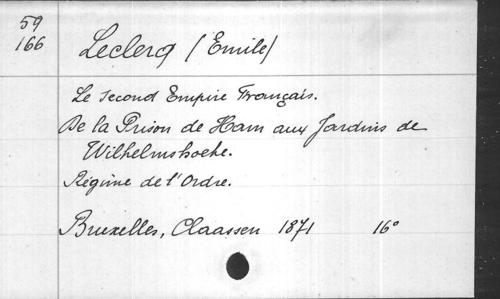 59
166
Leclerq (Emile)
Le Second Empire Français.
De la Prison de Ham aux Jardins de
Wilhelmshoehe.
Régime de l'Ordre.
Bruxelles, Claassen 1871 16°